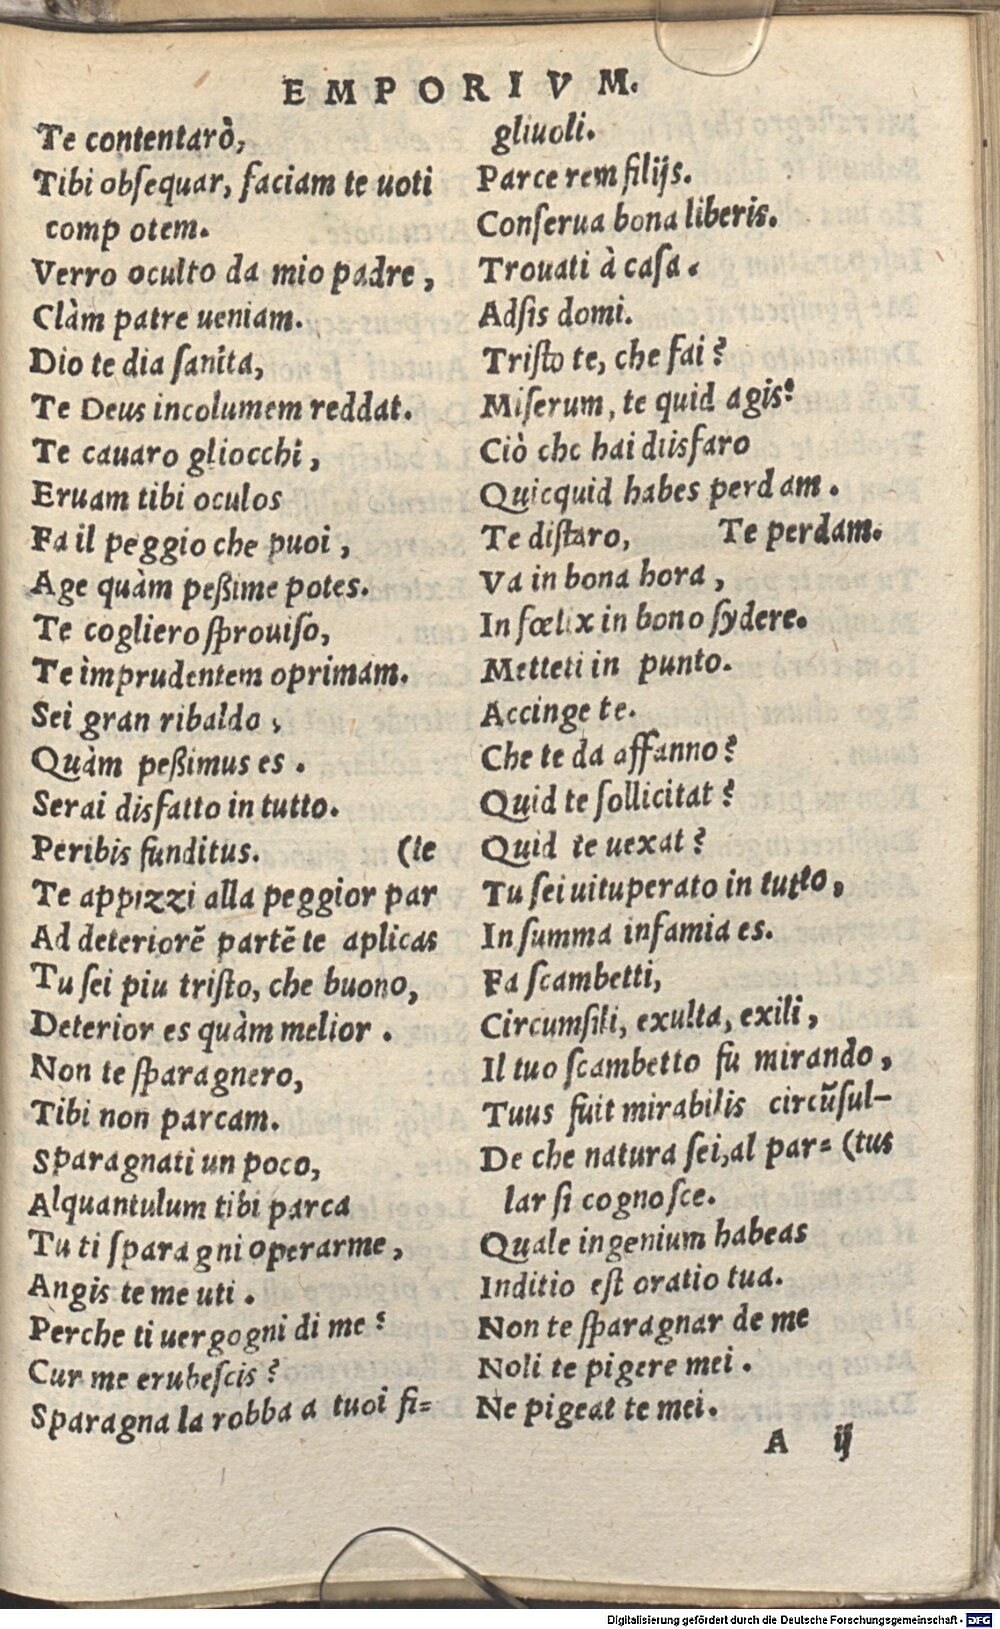 EMPORIVM.
Te contentarò,
Tibi obſequar, faciam te uoti
comp otem.
Verro oculto da mio padre,
Clàm patre ueniam.
Dio te dia ſanita,
Te Deus incolumem reddat.
Te cauaro gliocchi,
Eruam tibi oculos
Fa il peggio che puoi,
Age quàm peßime potes.
Te cogliero ſprouiſo,
Te imprudentem oprimam.
Sei gran ribaldo,
Quàm peßimus es.
Serai disfatto in tutto.
Peribis funditus. (te
Te appizzi alla peggior par
Ad deteriorē partē te aplicas
Tu ſei piu triſto, che buono,
Deterior es quàm melior.
Non te ſparagnero,
Tibi non parcam.
Sparagnati un poco,
Alquantulum tibi parca
Tu ti ſparagni operarme,
Angis te me uti.
Perche ti uergogni di me?
Cur me erubeſcis?
Sparagna la robba a tuoi fi=
gliuoli.
Parce rem filijs.
Conſerua bona liberis.
Trouati à caſa.
Adſis domi.
Triſto te, che fai?
Miſerum, te quid agis?
Ciò che hai diisfaro
Quicquid habes perdam.
Te disfaro, Te perdam.
Va in bona hora,
In fœlix in bono ſydere.
Metteti in punto.
Accinge te.
Che te da affanno?
Quid te ſollicitat?
Quid te uexat?
Tu ſei uituperato in tutto,
In ſumma infamia es.
Fa ſcambetti,
Circumſili, exulta, exili,
Il tuo ſcambetto fu mirando,
Tuus fuit mirabilis circūſul-
De che natura ſei, al par= (tus
lar ſi cognoſce.
Quale ingenium habeas
Inditio eſt oratio tua.
Non te ſparagnar de me
Noli te pigere mei.
Ne pigeat te mei.
A ij
Digitalisierung gefördert durch die Deutsche Forschungsgemeinschaft - DFG